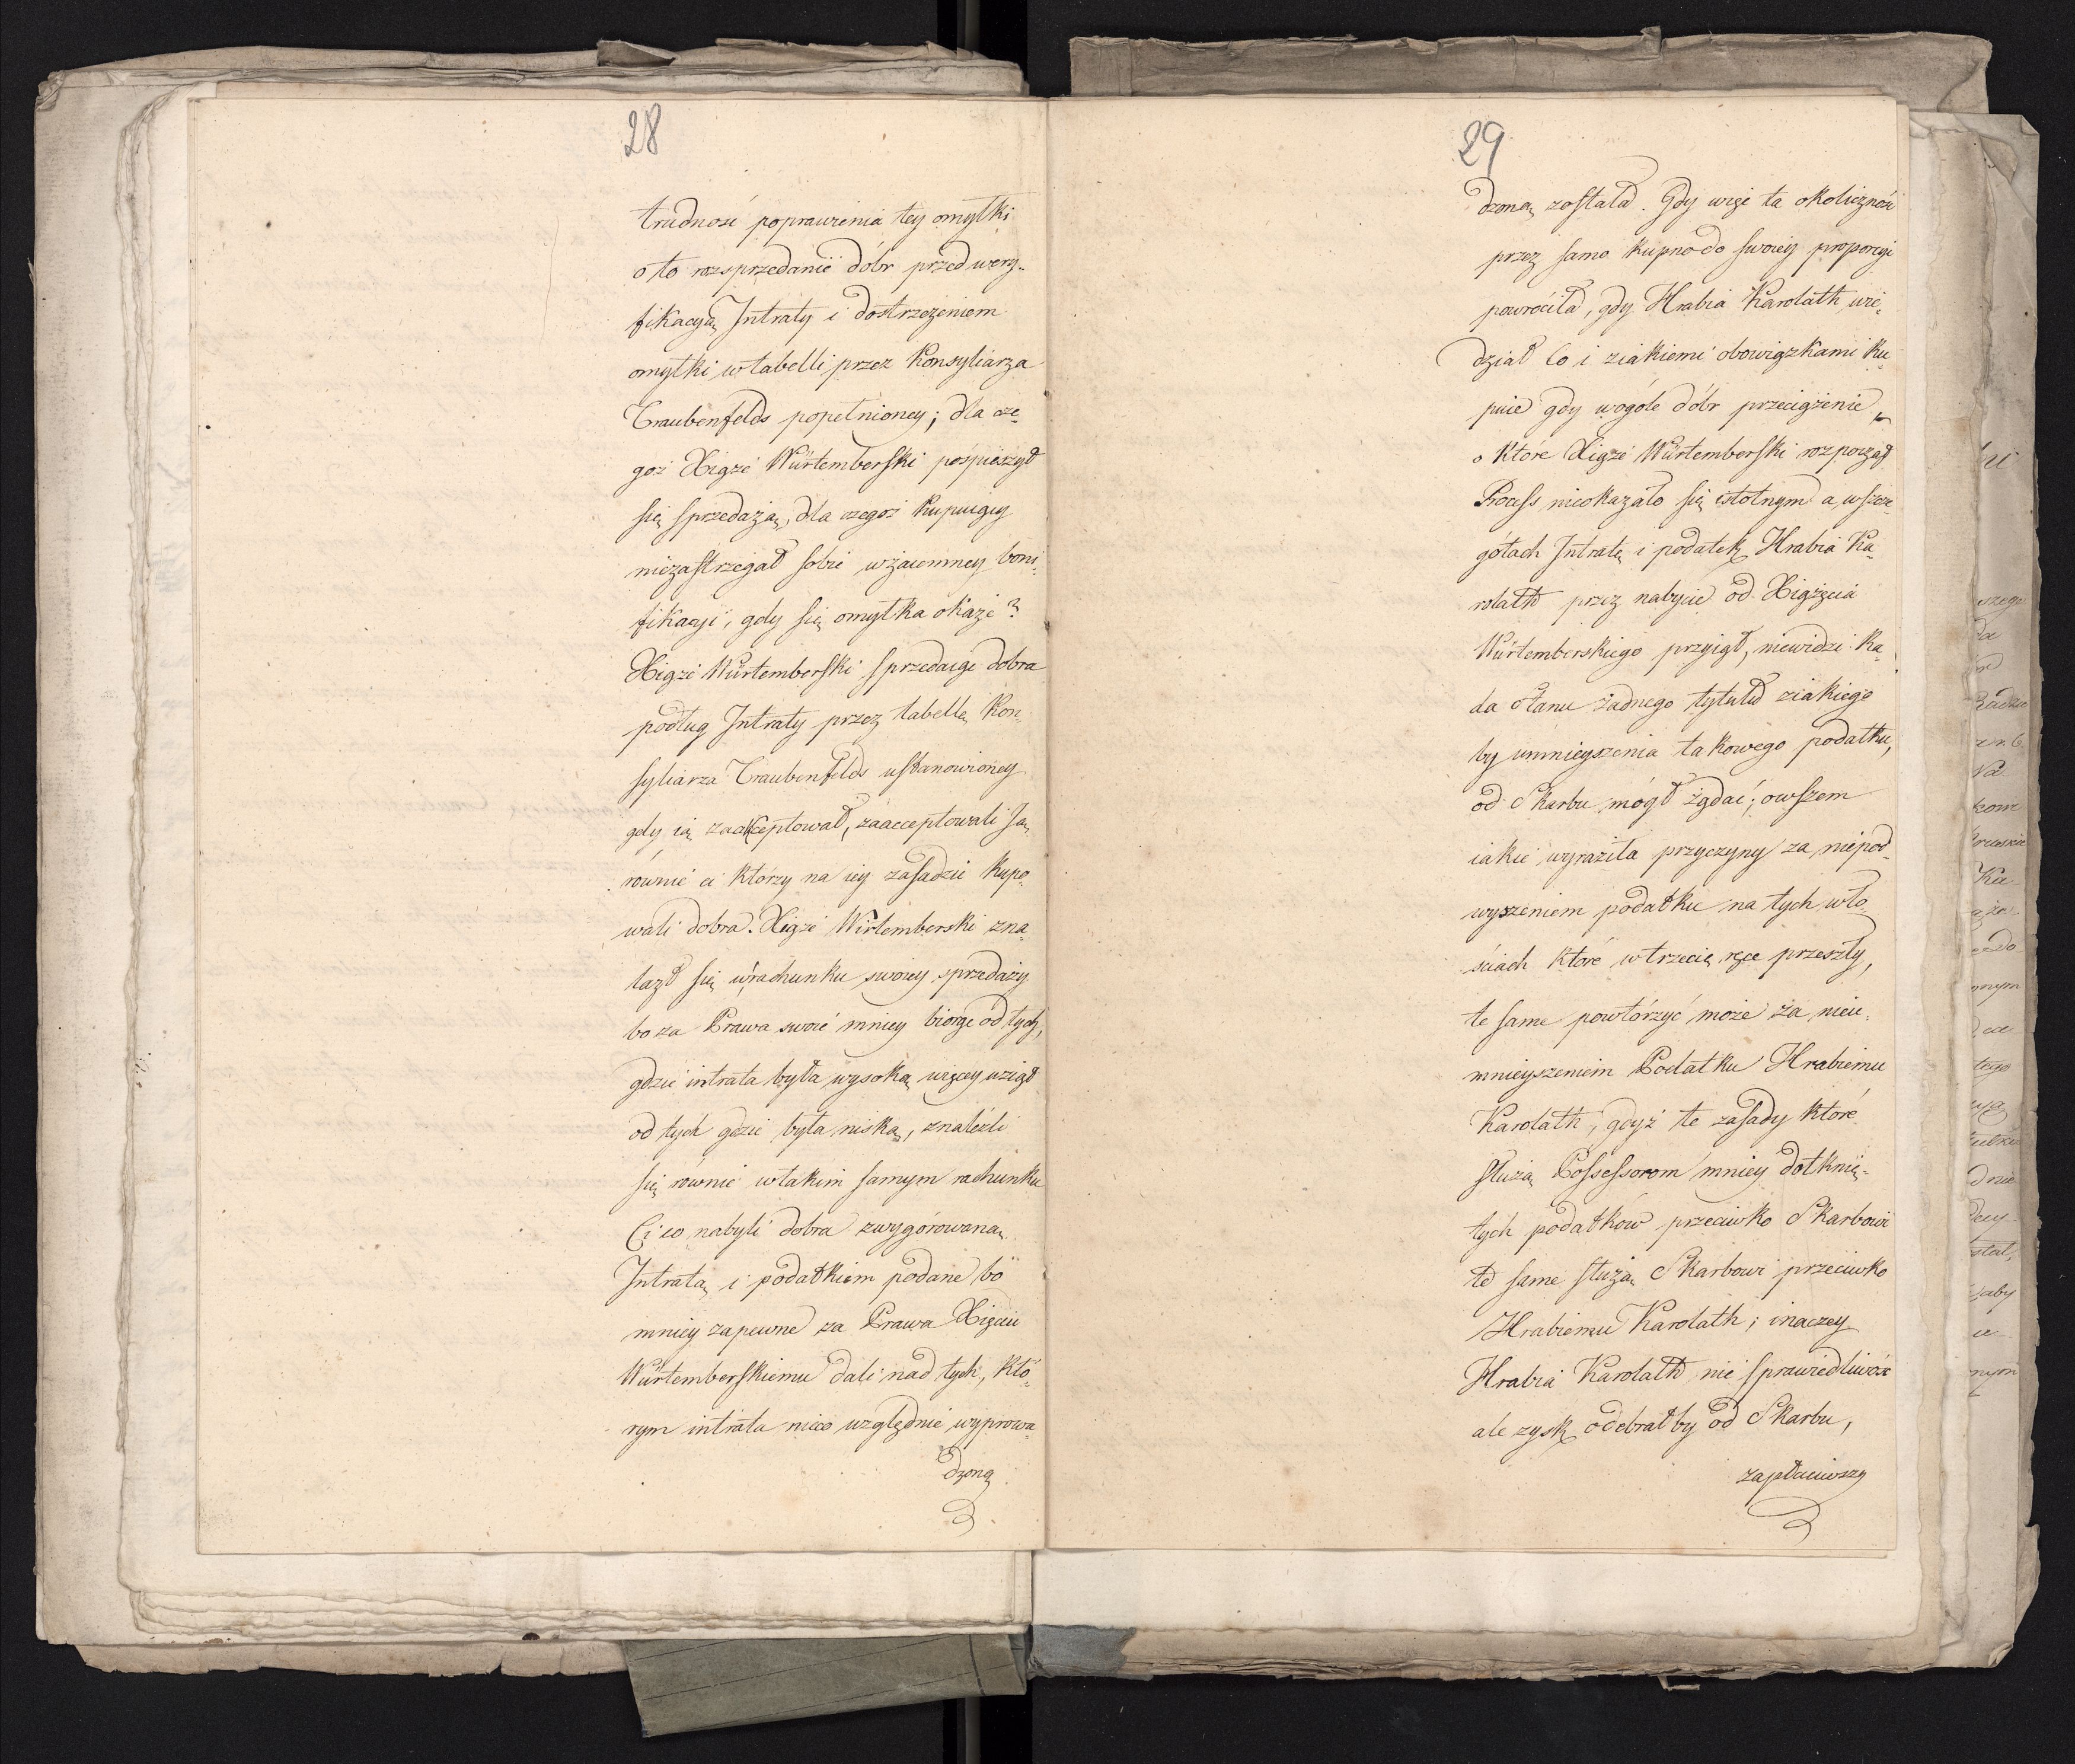 28
trudność poprawienia tey omyłki
o to rozsprzedanie dóbr przed wery-
fikacyą Intraty i dostrzeżeniem
omyłki w tabelli przez Konsyliarza
Traubenfelds popełnioney; dla cze-
goż Xiąże Würtemberski pośpieszył
się sprzedażą, dla czegoż kupuiący
niezastrzegał sobie wzaiemney boni-
fikacyi, gdy się omyłka okaże?
Xiąże Würtemberski sprzedaiąc dobra
podług Intraty przez tabellę Kon-
syliarza Traubenfelds ustanowioney
gdy ią zaakceptował, zaacceptowali ią
równie ci którzy na iey zasadzie kupo-
wali dobra. Xiąże Wirtemberski zna-
lazł się w rachunku swoiey sprzedaży
bo za Prawa swoie mniey biorąc od tych,
gdzie intrata była wysoką więcey wziął
od tych gdzie była niską, znaleźli
się równie w takim samym rachunku
Ci co nabyli dobra zwygórowaną
Intratą i podatkiem podane bo
mniey zapewne za Prawa Xięciu
Würtemberskiemu dali nad tych, któ-
rym intrata nieco względnie wyprowa-
dzoną
29
dzoną została. Gdy więc ta okoliczność
przez samo kupno do swoiey proporcyi
powróciła, gdy Hrabia Karolath wie-
dział co i ziakiemi obowiązkami ku-
puie gdy wogóle dóbr przeciążenie,
o które Xiąże Würtemberski rozpoczął
Process nieokazało się istotnym a w szcze-
gółach Intratę i podatek Hrabia Ka-
rolath przez nabycie od Xiążęcia
Würtemberskiego przyiął, niewidzi Ra-
da Stanu żadnego tytułu ziakiego
by umnieyszenia takowego podatku,
od Skarbu mógł żądać; owszem
iakie wyraziła przyczyny za niepod-
wyszeniem podatku na tych wło-
ściach które w trzecią ręce przeszły,
te same powtórzyć może za nieu-
mnieyszeniem Podatku Hrabiemu
Karolath, gdyż te zasady które
służą Possessorom mniey dotknię-
tych podatków przeciwko Skarbowi
te same służą Skarbowi przeciwko
Hrabiemu Karolath; inaczey
Hrabia Karolath nie sprawiedliwość
ale zysk odebrał by od Skarbu,
zapłaciwszy